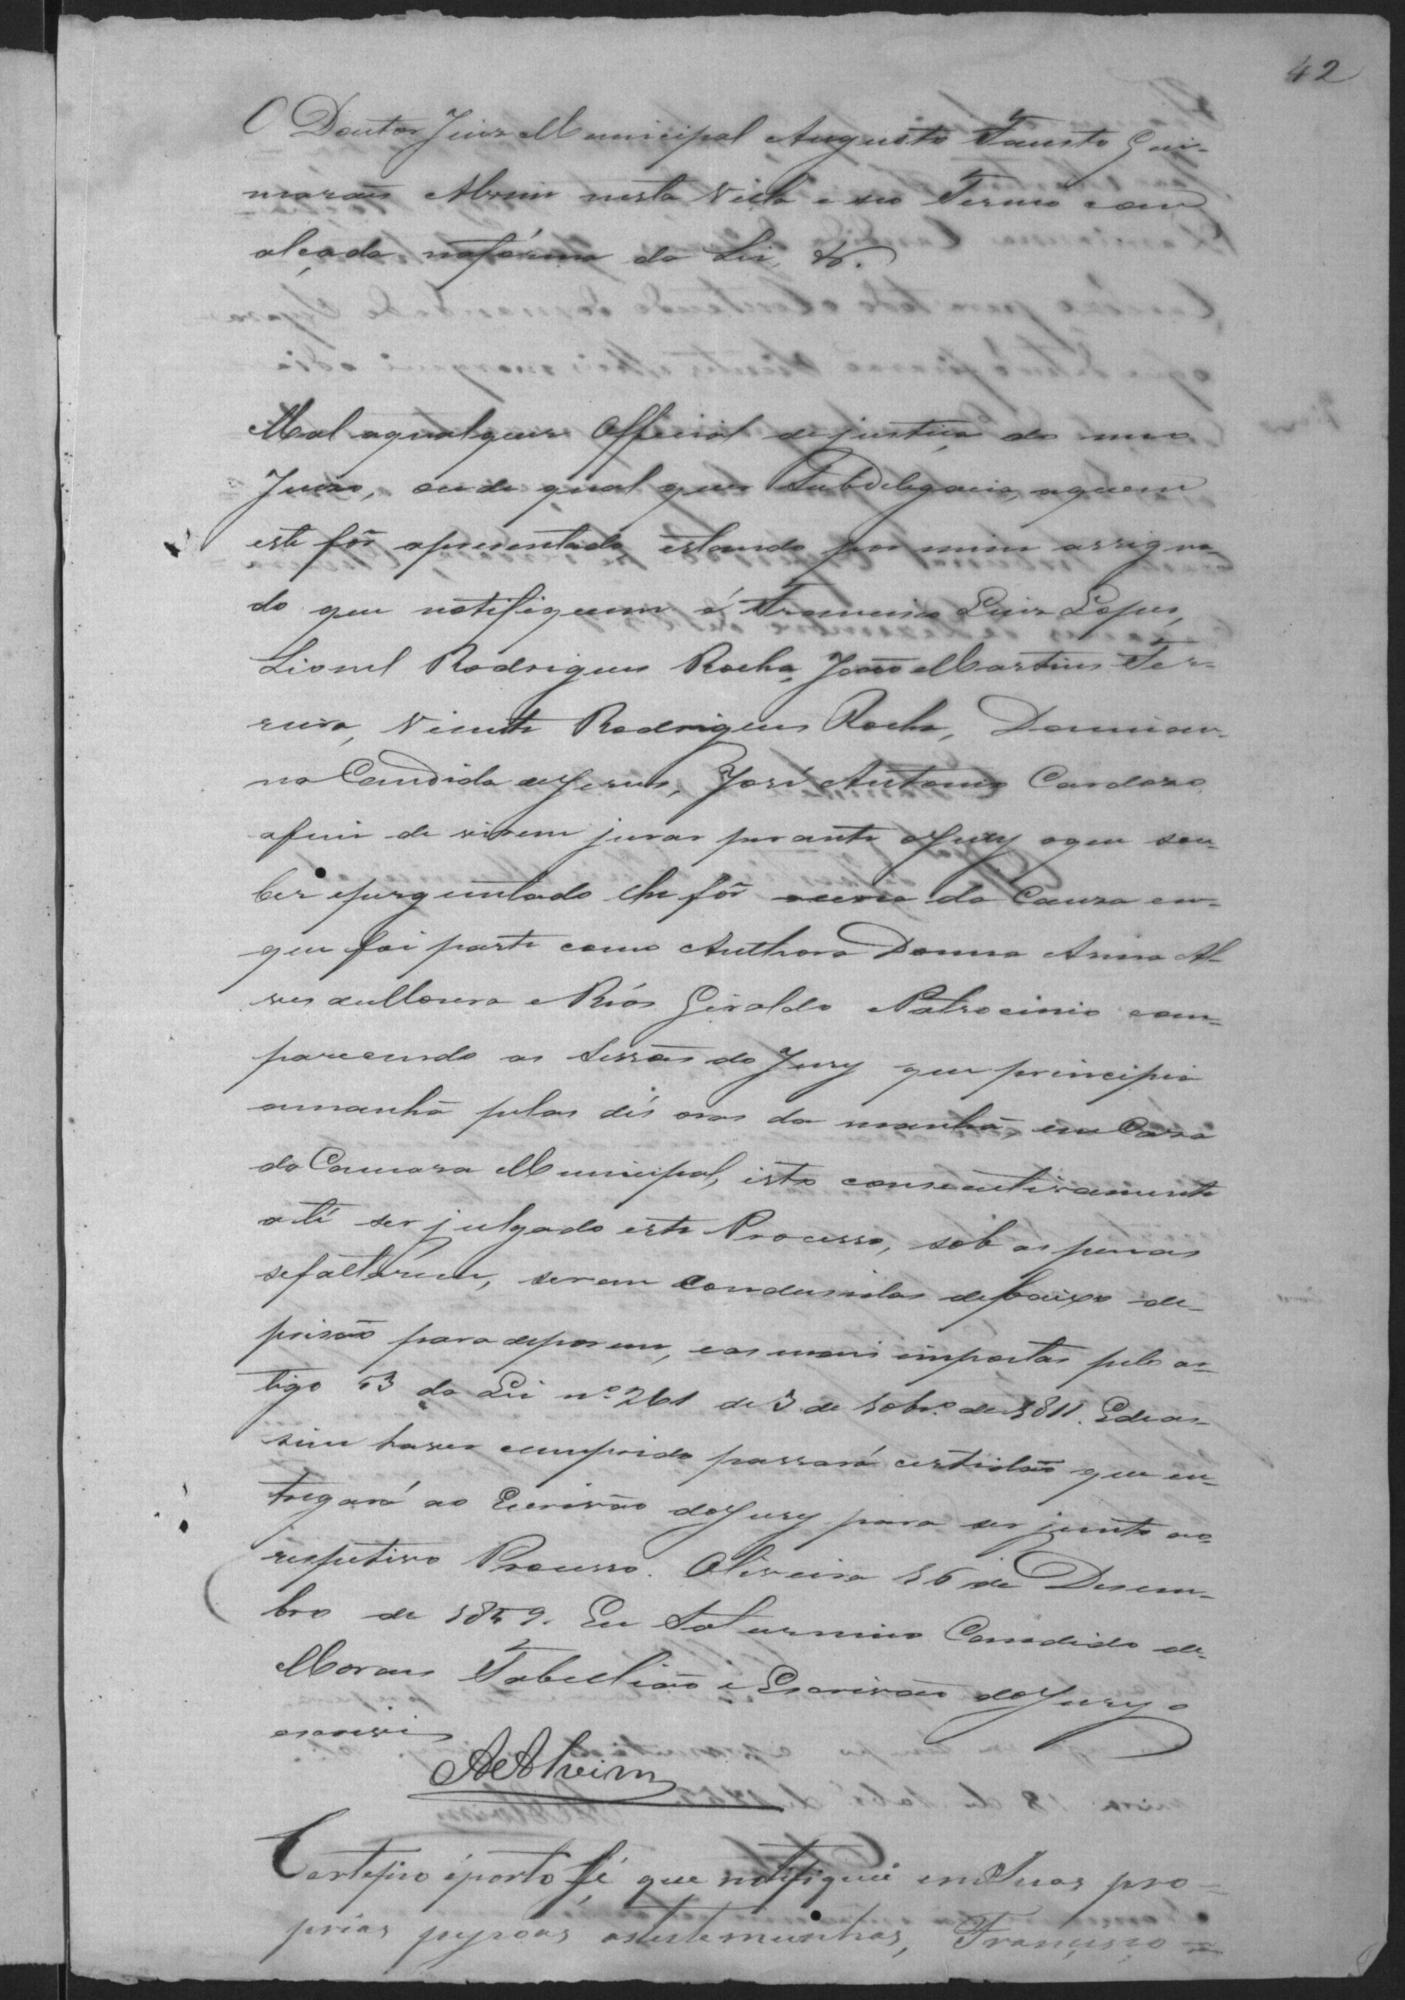 42
O Doutor Juiz Municipal Augusto Fausto Gui-
marães Alvim nesta Villa e seo Termo com
alçada nafórma da Lei, &.
Mal aqualquer Official dejustiça do meo
Juizo, oude qual quer Subdelegacia, aquem
este fôr apresentado estando por mim assigna-
do que notifiquem á Francisco Luiz Lopes,
Lionel Rodrigues Rocha, João Martins Fer-
reira, Vicente Rodrigues Rocha, Damian-
na Candida deJesus, José Antonio Cardozo
afim de virem jurar perante oJury oque sou-
ber eperguntado lhe fôr acerca da Cauza em-
que foi parte como Authora Donna Anna Al-
ves deMoura e Réos Geraldo Patrocinio com-
parecendo as Sessões do Jury que principia
amanhã pelas dés oras da manhã, em Casa
da Camara Municipal, isto consecutivamente
até ser julgado este Processo, sob as penas
sefaltárem, serem condusidas debaixo de-
prisão para deporem, eas mais impostas pelo ar-
tigo 53 da Lei nº 261 de 3 de 10brº de 1841. Edeas-
sim haver cumprido passará certidão que en-
tregará ao Escrivão doJury para ser junto ao-
respetivo Processo. Oliveira 16 de Desem-
bro de 1859. Eu Saturnino Candido de
Moraes Tabellião e Escrivão doJury o
escrevi
AAlvim
Certefico éporto fé que notifiquei em Suas pro-
prias peçoas astestemunhas, Francisco